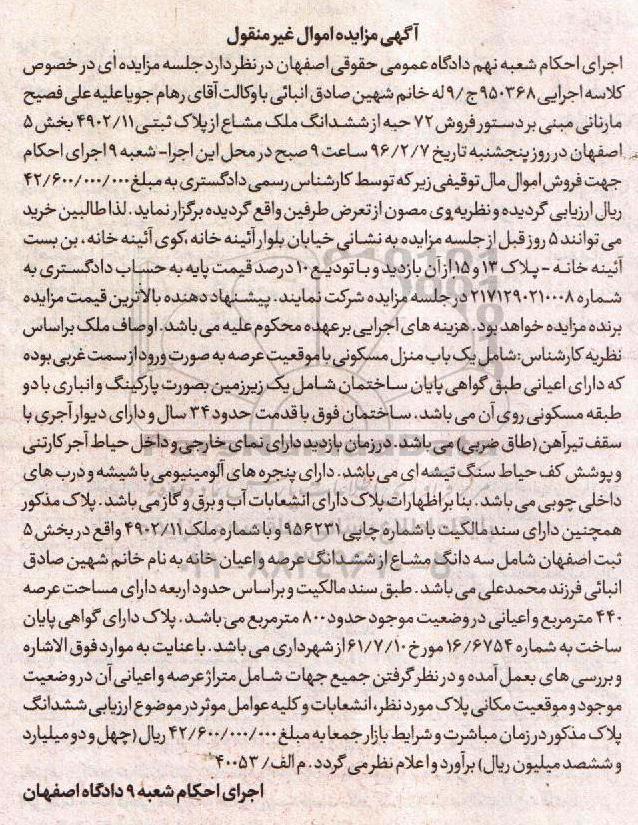 آگهی مزایده اموال غیر منقول
اجرای احکام شعبه نهم دادگاه عمومی حقوقی اصفهان در نظر دارد جلسه مزایده ای در خصوص
کلاسه اجرایی ۹۵۰۳۶۸ج/۹ له خانم شهین صادق انبائی با وکالت آقای رهام جویا علیه علی فصیح
مارنانی مبنی بر دستور فروش ۷۲ حبه از ششدانگ ملک مشاع از پلاک ثبتی ۴۹۰۲/۱۱ بخش ۵
اصفهان در روز پنجشنبه تاریخ ۹۶/۲/۷ ساعت ۹ صبح در محل این اجرا- شعبه ۹ اجرای احکام
جهت فروش اموال مال توقیفی زیر که توسط کارشناس رسمی دادگستری به مبلغ ۴۲/۶۰۰/۰۰۰/۰۰۰
ریال ارزیابی گردیده و نظریه وی مصون از تعرض طرفین واقع گردیده برگزار نماید. لذا طالبین خرید
می توانند ۵ روز قبل از جلسه مزایده به نشانی خیابان بلوار آئینه خانه ،کوی آئینه خانه ، بن بست
آئینه خانه - پلاک ۱۳ و ۱۵ از آن بازدید و با تودیع ۱۰ درصد قیمت پایه به حساب دادگستری به
شماره ۲۱۷۱۲۹۰۲۱۰۰۰۸ در جلسه مزایده شرکت نمایند. پیشنهاد دهنده بالاترین قیمت مزایده
برنده مزایده خواهد بود. هزینه های اجرایی بر عهده محکوم علیه می باشد. اوصاف ملک براساس
نظریه کارشناس: شامل یک باب منزل مسکونی با موقعیت عرصه به صورت ورود از سمت غربی بوده
که دارای اعیانی طبق گواهی پایان ساختمان شامل یک زیرزمین بصورت پارکینگ و انباری با دو
طبقه مسکونی روی آن می باشد. ساختمان فوق با قدمت حدود ۳۴ سال و دارای دیوار آجری با
سقف تیرآهن (طاق ضربی) می باشد. در زمان بازدید دارای نمای خارجی و داخل حیاط آجر کارتنی
و پوشش کف حیاط سنگ تیشه ای می باشد. دارای پنجره های آلومینیومی با شیشه و درب های
داخلی چوبی می باشد. بنا بر اظهارات پلاک دارای انشعابات آب و برق و گاز می باشد. پلاک مذکور
همچنین دارای سند مالکیت با شماره چاپی ۹۵۶۲۳۱ و با شماره ملک ۴۹۰۲/۱۱ واقع در بخش ۵
ثبت اصفهان شامل سه دانگ مشاع از ششدانگ عرصه و اعیان خانه به نام خانم شهین صادق
انبائی فرزند محمدعلی می باشد. طبق سند مالکیت و براساس حدود اربعه دارای مساحت عرصه
۴۴۰ مترمربع و اعیانی در وضعیت موجود حدود ۸۰۰ مترمربع می باشد. پلاک دارای گواهی پایان
ساخت به شماره ۱۶/۶۷۵۴ مورخ ۶۱/۷/۱۰ از شهرداری می باشد. با عنایت به موارد فوق الاشاره
و بررسی های بعمل آمده و در نظر گرفتن جمیع جهات شامل متراژ عرصه و اعیانی آن در وضعیت
موجود و موقعیت مکانی پلاک مورد نظر، انشعابات و کلیه عوامل موثر در موضوع ارزیابی ششدانگ
پلاک مذکور در زمان مباشرت و شرایط بازار جمعا به مبلغ ۴۲/۶۰۰/۰۰۰/۰۰۰ ریال (چهل و دو میلیارد
و ششصد میلیون ریال) برآورد و اعلام نظر می گردد. م الف/ ۴۰۰۵۳
اجرای احکام شعبه ۹ دادگاه اصفهان